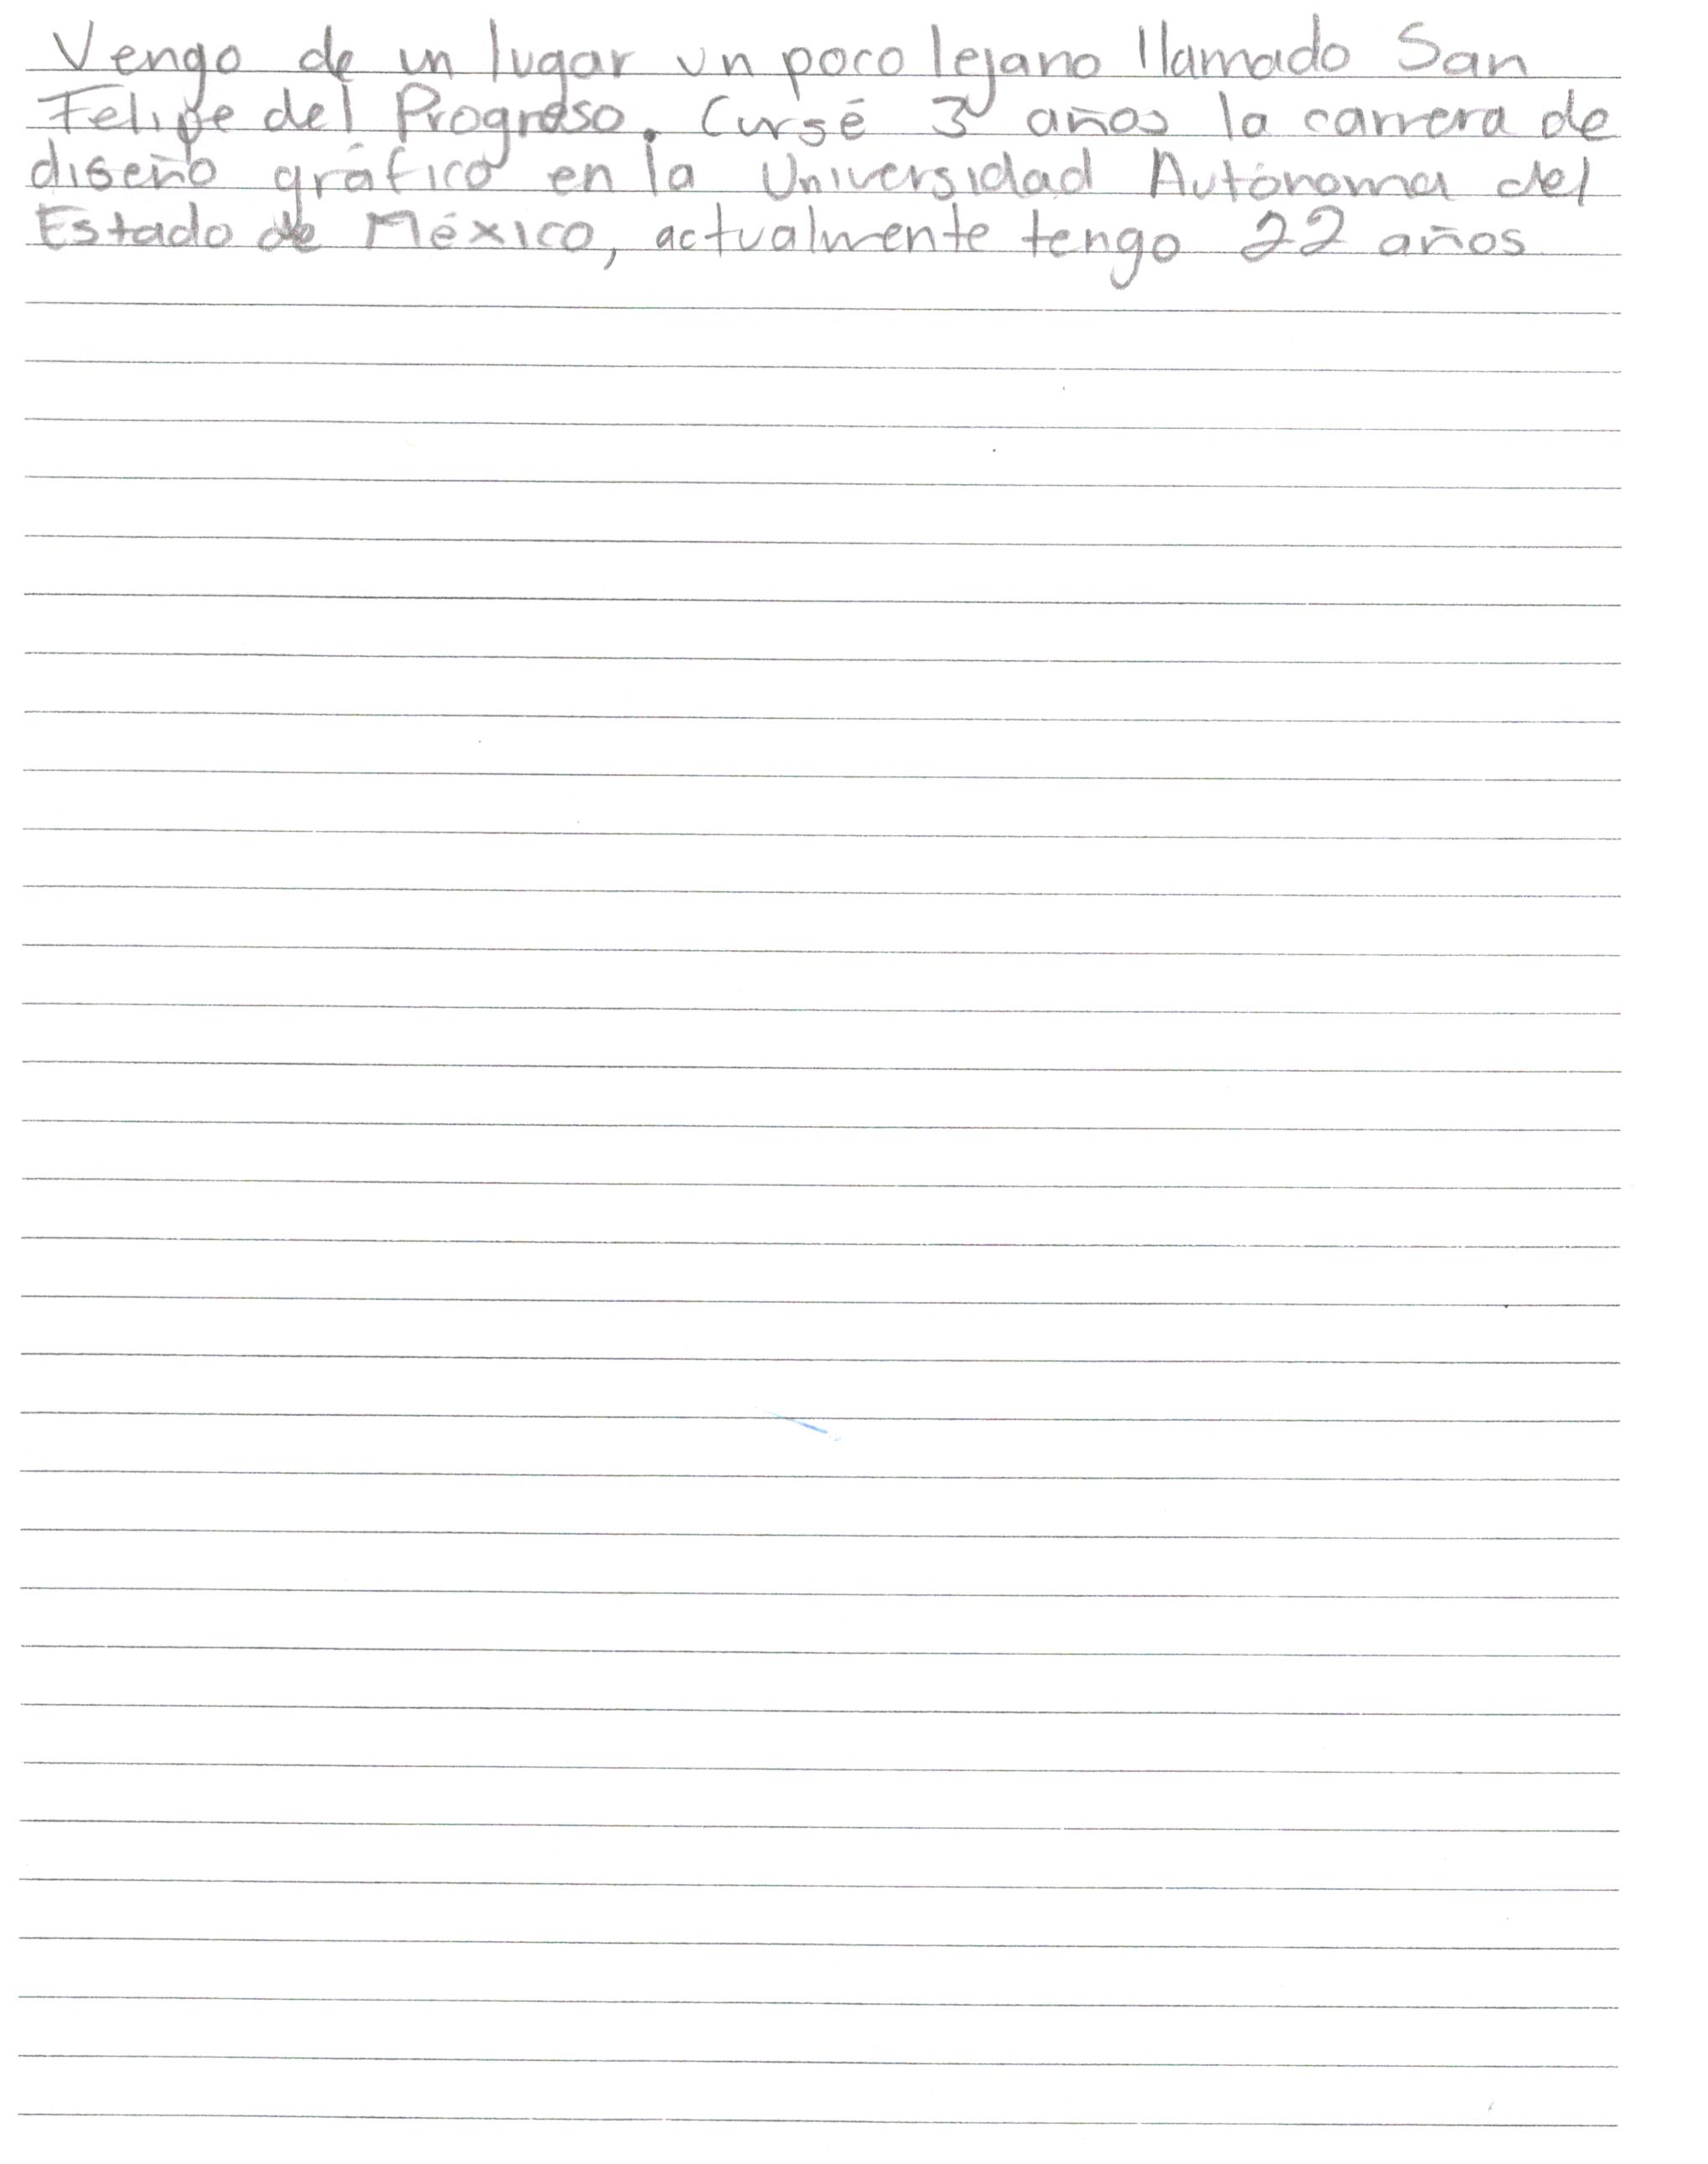 Vengo de un lugar un poco lejano llamado San
Felipe del Progreso. Cursé 3 años la carrera de
diseño gráfico en la Universidad Autónoma del
Estado de México, actualmente tengo 22 años